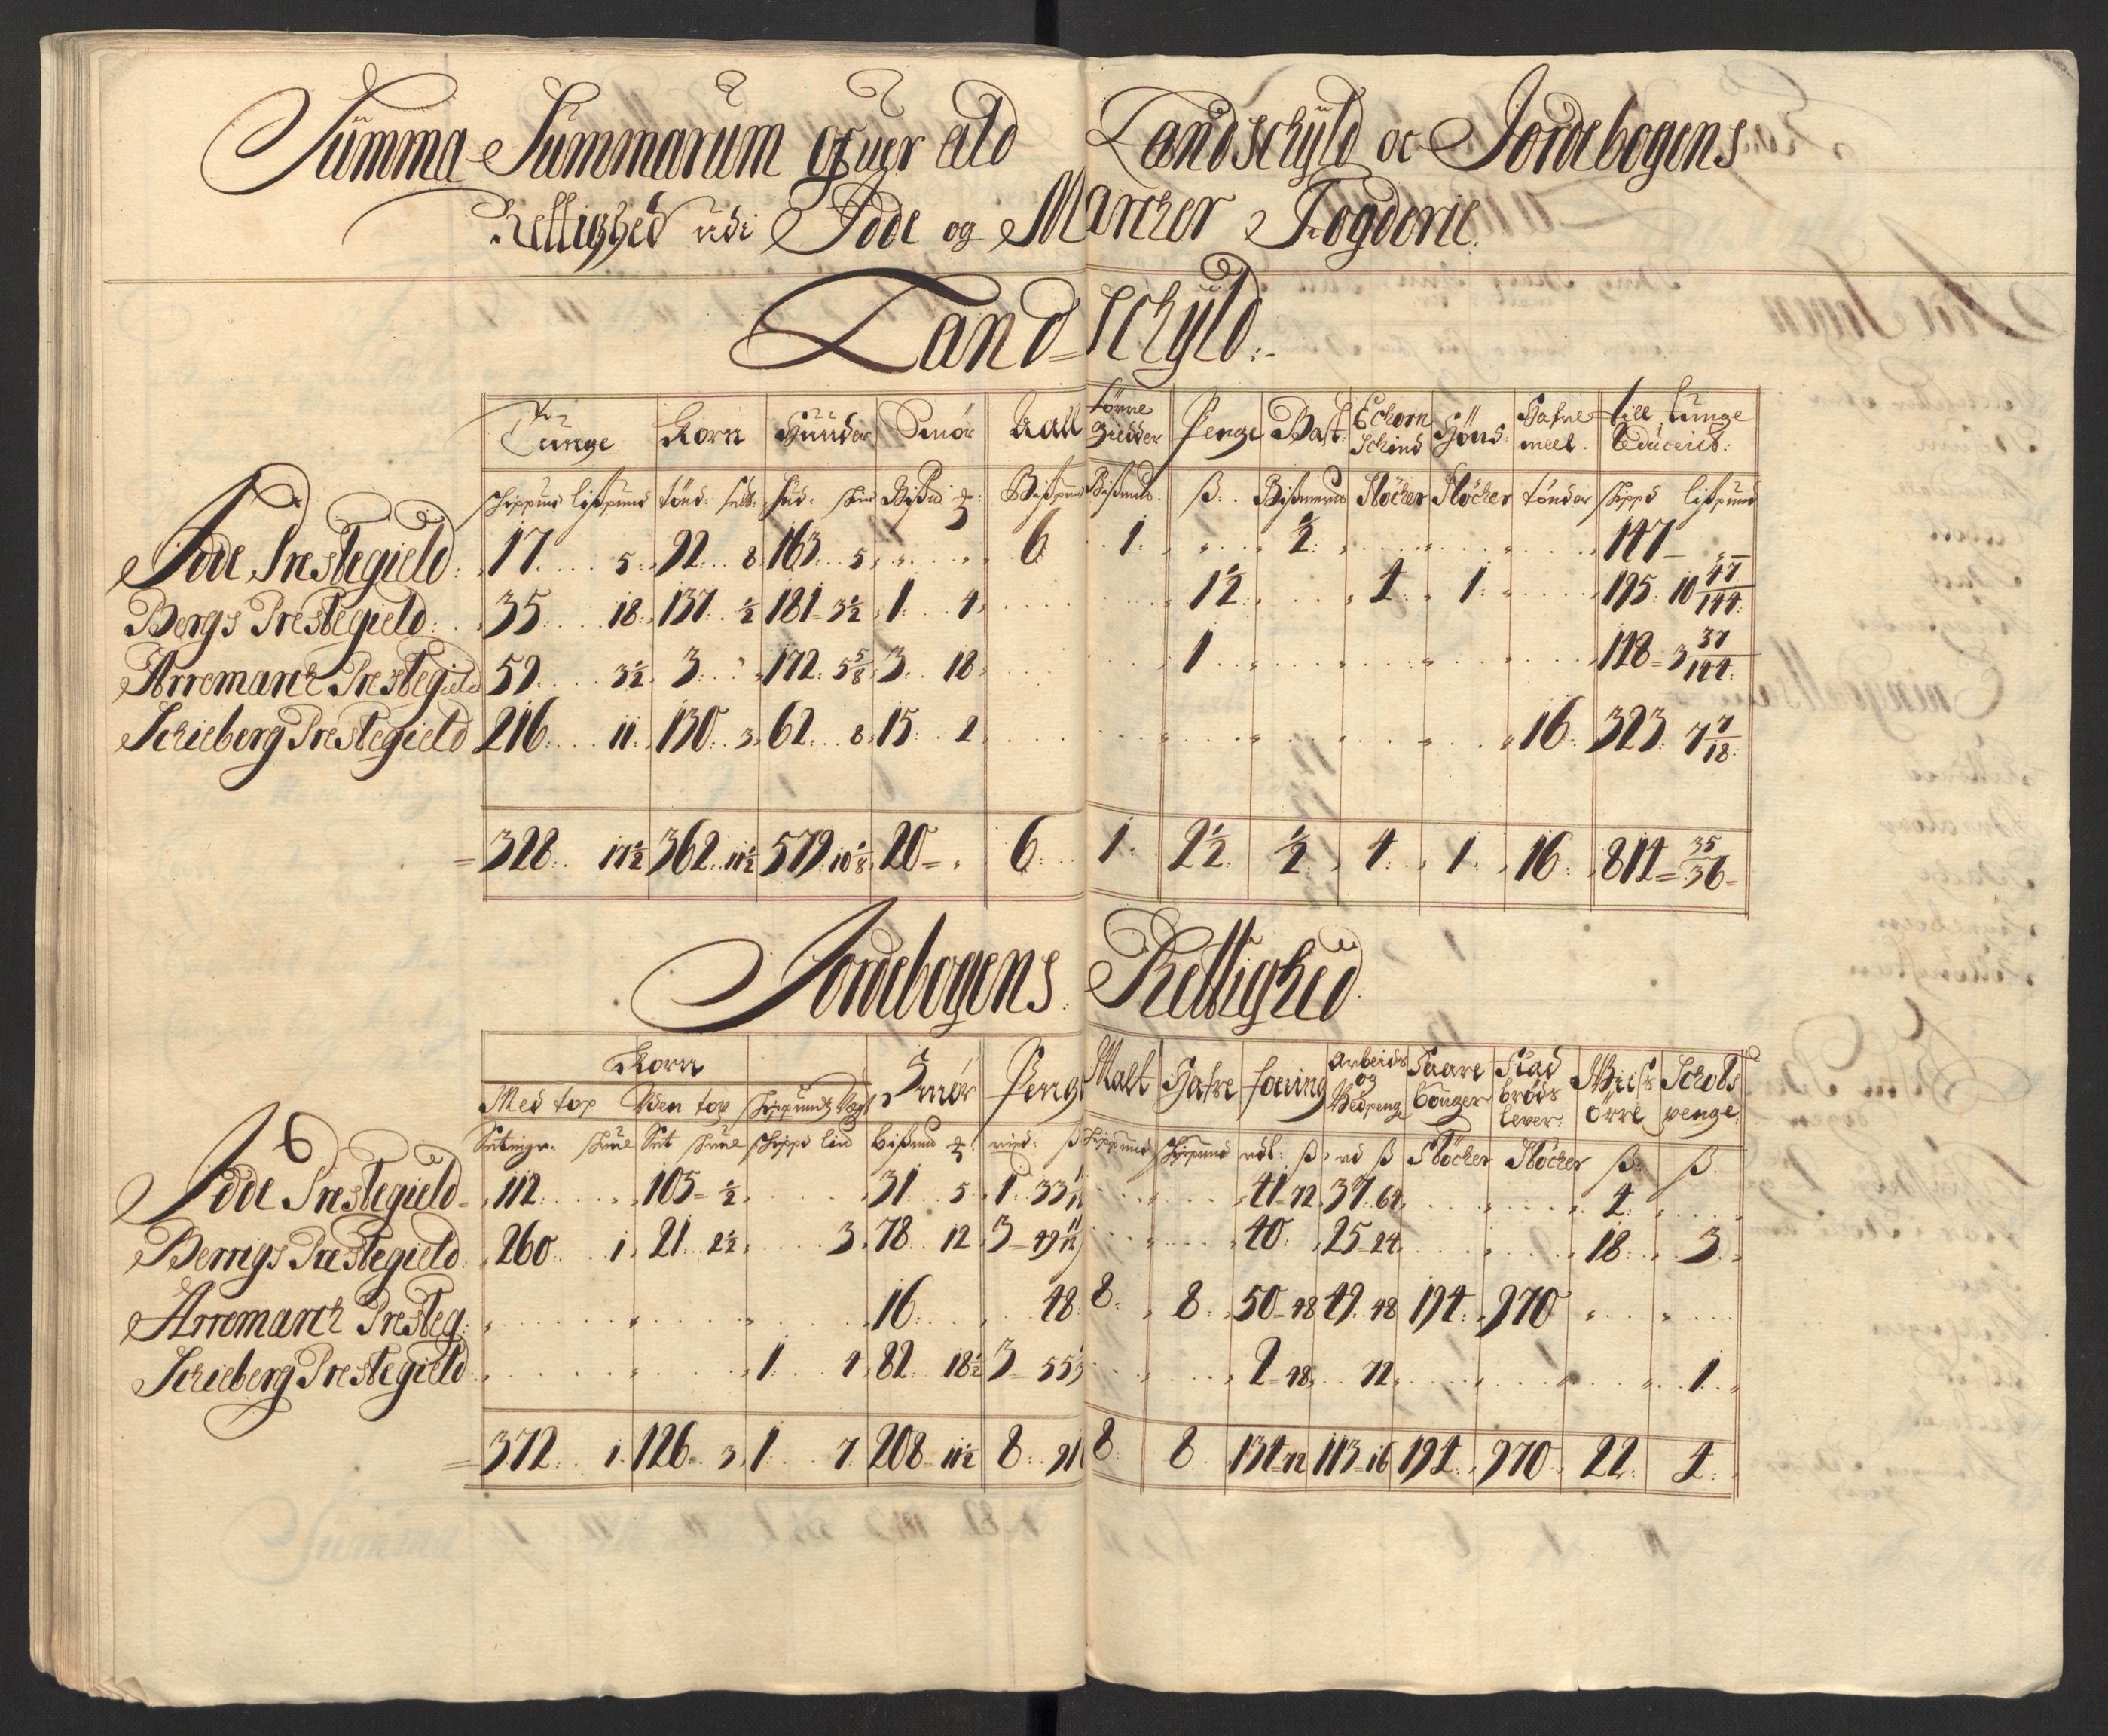 Summa Summarum ofuer ald Landschyld oc Jordebogens
Rettighed udi Idde og Marcker Fogderie.
Landschyld:
Tunge Korn Huuder Smör Kall törre Giedder Penge Bast Echorn Schind Höns: Hafre meel. till tunge Reducerit:
schippund lispund tönd: sett: hud: skin Bispd Bispund Bismd. ß: Bismerud Støcker Støcker tønder schipd lispund
Idde Prestegield: 17 5 92 8 163 5 6 1 ½ 147
Bergs Prestegield: 35 18 137 ½ 181 3½ 1 4 1½ 4 1 195 10 47/144
Arremarck Prestegield 59 3½ 3 172 5 5/8 3 18 1 148 3 37/144
Schieberg Prestegield 216 11 130 3 62 8 15 2 16 323 7 7/18
328 17½ 362 11½ 579 10 1/8 20 6 1 2½ ½ 4 1 16 814 35/36
Jordebogens Rettighed
Korn Smör Penge Malt Hafre foering Arbeids og Vedpenge Saare Bouger Flad brøds lever Miels Örre Schods penge
Med top Uden top schippunds Vegt
Setinger Set schipd bismd ß schippund schippund rdl: ß rd ß Støcker Støcker ß: ß.
Idde Prestegield 112 105 ½ 31 5 1 33 41 72 37 64 4
Berrigs Prestegield 260 1 21 2½ 3 78 12 3 49 40 25 24 18 3
Arremarck Presteg: 16 48 8 8 50 48 49 48 194 970
Schieberg Prestegield 1 4 82 18½ 3 55 2 48 72 1
372 1 126 3 1 7 208 11½ 8 91 8 8 134 72 113 16 194 970 22 4